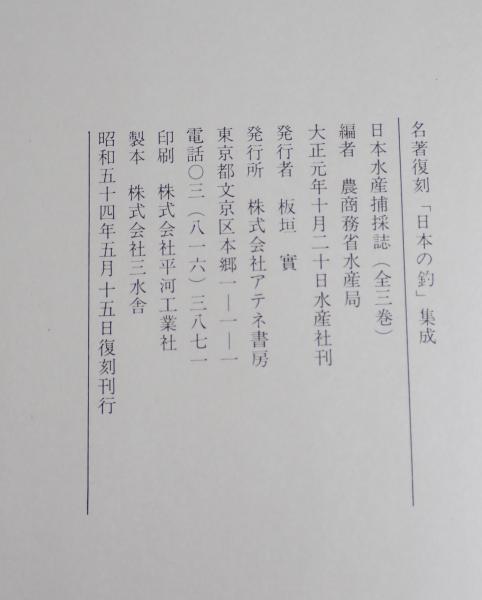 名著復刻「日本の釣」集成
日本水産捕採誌（全三巻）
編者　農商務省水産局
大正元年十月二十日水産社刊
発行者　板垣　實
発行所　株式会社アテネ書房
東京都文京区本郷一―一―一
電話〇三（八一六）三八七一
印刷　株式会社平河工業社
製本　株式会社三水舎
昭和五十四年五月十五日復刻刊行